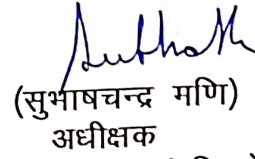 Subhash
(सुभाषचन्द्र मणि)
अधीक्षक